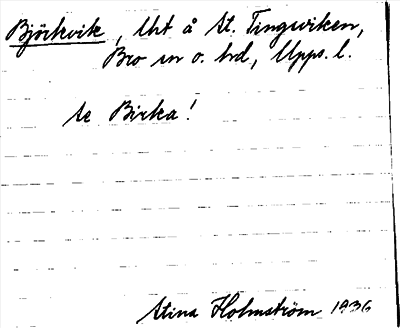 Björkvik, lht å St. Tingviken,
Bro sn o. hd, Upps. l.
se Birka!
Stina Holmström 1936